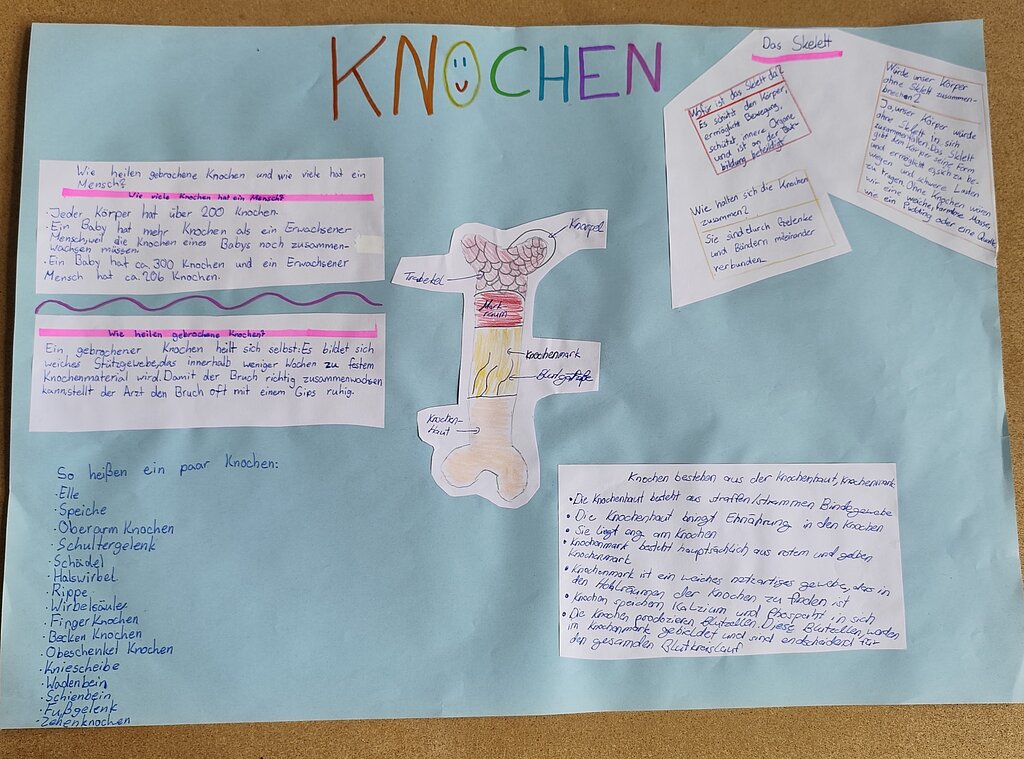 KNOCHEN
Wie heilen gebrochene Knochen und wie viele hat ein
Mensch?
Wie viele Knochen hat ein Mensch?
· Jeder Körper hat über 200 Knochen.
· Ein Baby hat mehr Knochen als ein Erwachsener
Mensch,weil die Knochen eines Babys noch zusammen-
wachsen müssen.
· Ein Baby hat ca. 300 Knochen und ein Erwachsener
Mensch hat ca. 206 Knochen.
Wie heilen gebrochene Knochen?
Ein gebrochener Knochen heilt sich selbst: Es bildet sich
weiches Stützgewebe,das innerhalb weniger Wochen zu festem
Knochenmaterial wird. Damit der Bruch richtig zusammenwachsen
kann,stellt der Arzt den Bruch oft mit einem Gips ruhig.
So heißen ein paar Knochen:
· Elle
· Speiche
· Oberarm Knochen
· Schultergelenk
· Schädel
· Halswirbel
· Rippe
· Wirbelsäule
· Finger Knochen
· Becken Knochen
· Obeschenkel Knochen
· Kniescheibe
· Wadenbein
· Schienbein
· Fußgelenk
· Zehenknochen
Knorpel
Trabekel
Mark-
raum
Knochenmark
Blutgefäße
Knochen-
Haut
Das Skelett
Wofür ist das Skelett da?
Es schützt den Körper,
ermöglicht Bewegung,
schützt innere Organe
und ist an der Blut-
bildung beteiligt
Wie halten sich die Knochen
zusammen?
Sie sind durch Gelenke
und Bändern miteinander
verbunden
Würde unser Körper
ohne Sklett zusammen-
brechen?
Ja, unser Körper würde
ohne Skelett in sich
zusammenfallen. Das Skelett
gibt den Körper seine Form
und ermöglicht es, sich zu be-
wegen und schwere Lasten
zu tragen. Ohne Knochen wären
wir eine weiche, formlose Masse,
wie ein Pudding oder eine Qualle
Knochen bestehen aus der Knochenhaut, Knochenmark
• Die Knochenhaut besteht aus straffen/strammen Bindegewebe
• Die Knochenhaut bringt Ernährung in den Knochen
• Sie liegt eng am Knochen
• Knochenmark besteht hauptsächlich aus rotem und gelben
Knochenmark
• Knochenmark ist ein weiches netzartiges gewebe, das in
den Hohlräumen der Knochen zu finden ist
• Knochen speichern Kalzium und Phospaht in sich
• Die Knochen produzieren Blutzellen. Diese Blutzellen, werden
im Knochenmark gebieldet und sind endscheidend für
den gesamden Blutkreislauf